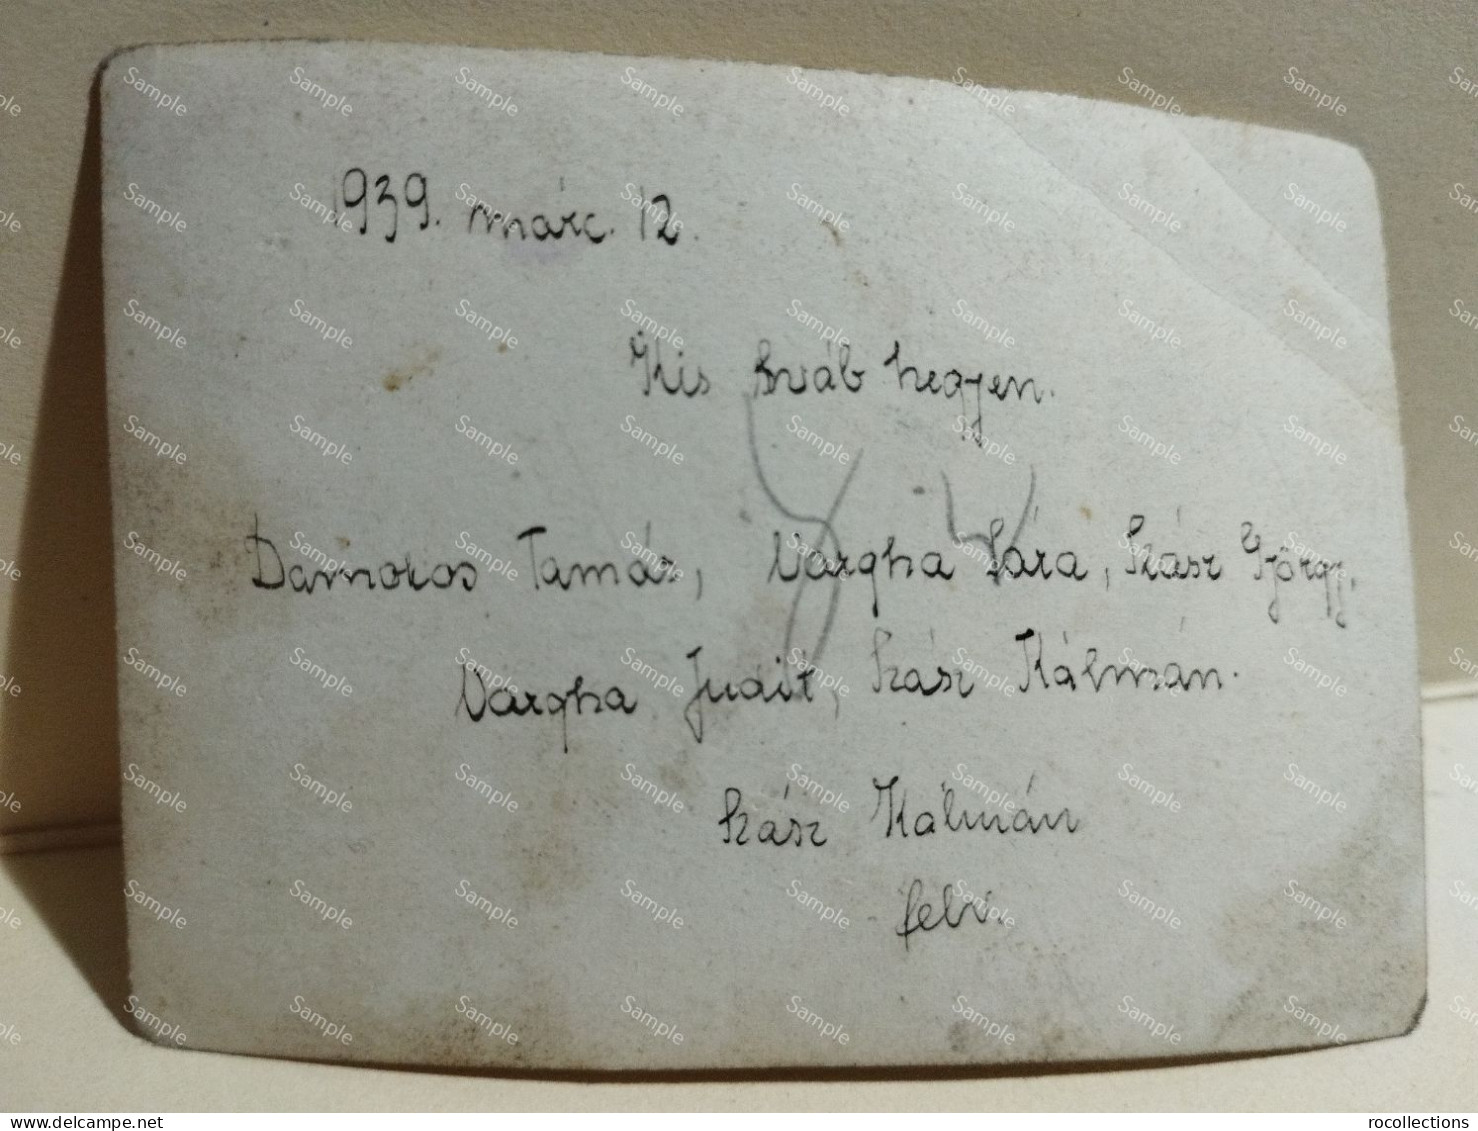 1939. márc. 12.
Kis Sváb hegyen.
Damokos Tamás, Vargha Sára, Szász György,
Vargha Judit, Szász Kálmán.
Szász Kálmán
felv.
rocollections